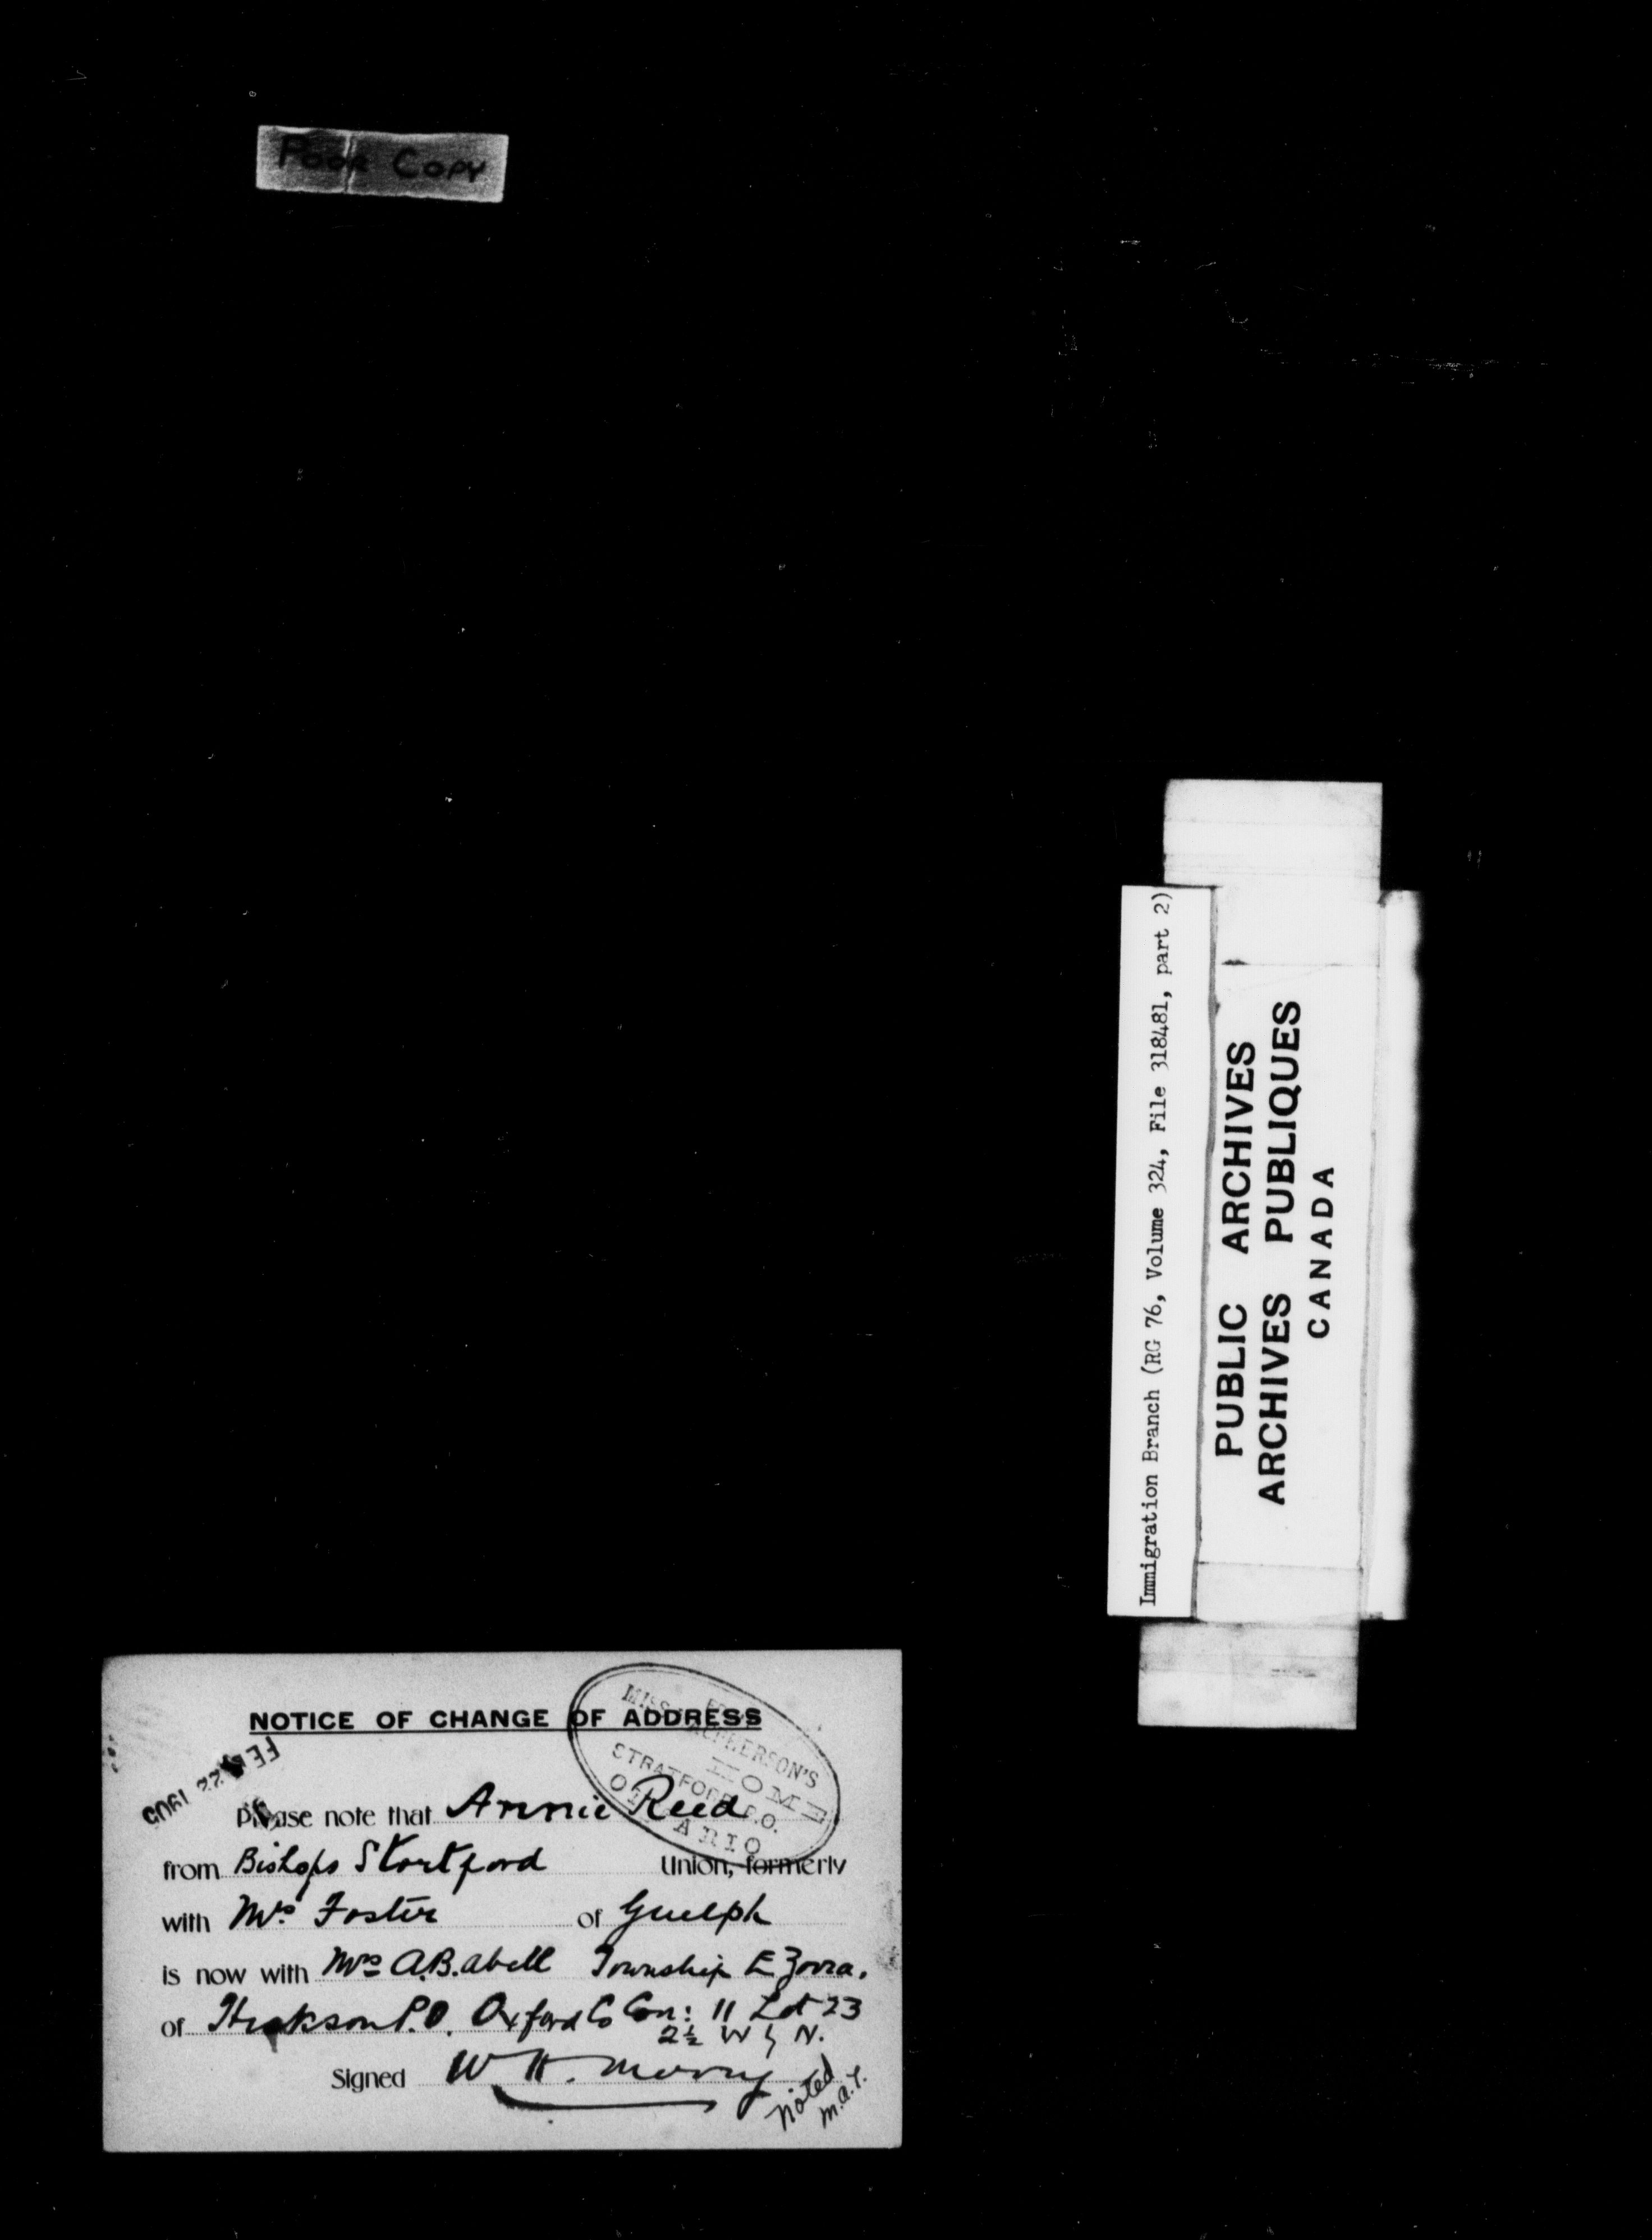 Poor Copy
Immigration Branch (RG 76, Volume 324, File 318481, part 2)
PUBLIC ARCHIVES
ARCHIVES PUBLIQUES
CANADA
NOTICE OF CHANGE OF ADDRESS
MISS MACPHERSON'S
HOME
STRATFORD P.O.
ONTARIO
FEB 22 1905
Please note that Annie Reed
from Bishops Stortford Union, formerly
with Mrs Foster of Guelph
is now with Mrs A.B. Abell Township E Zorra.
of Hickson P.O. Oxford Co Con: 11 Lot 23
2½ W N.
Signed W H. Merry
noted
m.a.